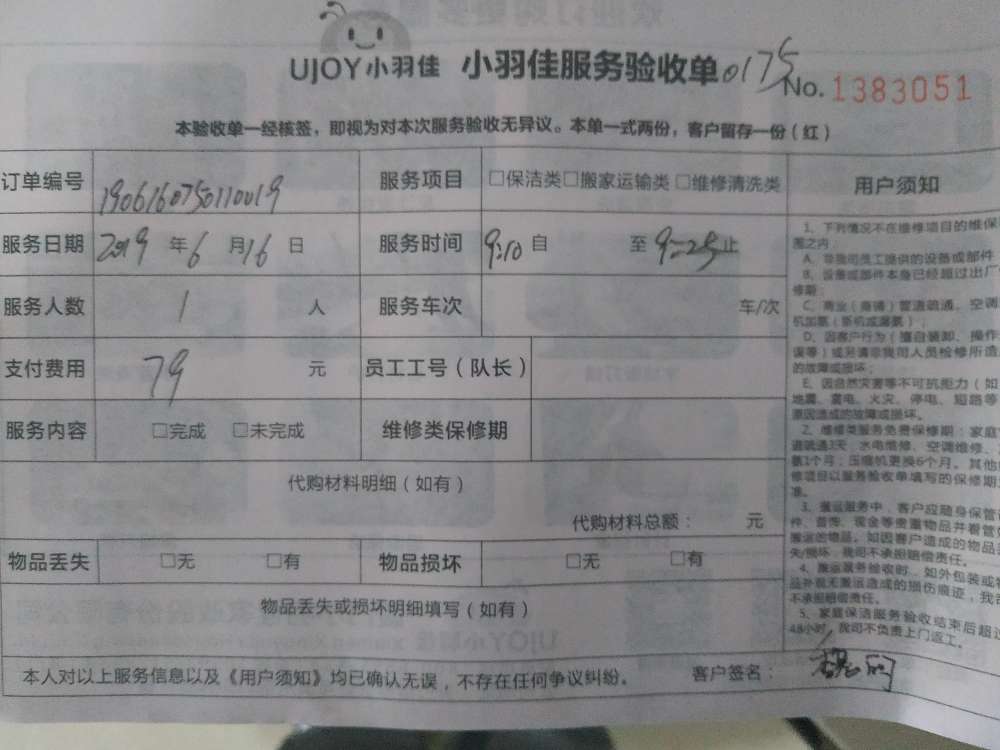 UJOY小羽佳 小羽佳服务验收单0175 No. 1383051
本验收单一经核签，即视为对本次服务验收无异议。本单一式两份，客户留存一份（红）
订单编号 1906160750110019 服务项目 □保洁类□搬家运输类□维修清洗类
服务日期 2019 年 6 月 16 日 服务时间 9:10 自 至 9:25 止
服务人数 1 人 服务车次 车/次
支付费用 79 元 员工工号（队长）
服务内容 □完成 □未完成 维修类保修期
代购材料明细（如有）
代购材料总额： 元
物品丢失 □无 □有 物品损坏 □无 □有
物品丢失或损坏明细填写（如有）
本人对以上服务信息以及《用户须知》均已确认无误，不存在任何争议纠纷。 客户签名：
用户须知
1、下列情况不在维修项目的维保
围之内
A、非我司员工提供的设备或部件
B、设备或部件本身已经超过出厂
修期；
C、商业（商铺）管道疏通、空调
机加氨（新机或漏氨）；
D、因客户行为（擅自装卸、操作
误等）或另请非我司人员检修所造
的故障或损坏；
E、因自然灾害等不可抗拒力（如
地震、雷电、火灾、停电、短路等
原因造成的故障或损坏。
2、维修类服务免费保修期：家庭
道疏通3天，水电维修、空调维修、
氨1个月；压缩机更换6个月。其他
修项目以服务验收单填写的保修期
准。
3、搬运服务中，客户应随身保管
件、首饰、现金等贵重物品并看管
搬运的物品。如因客户造成的物品
失/损坏，我司不承担赔偿责任。
4、搬运服务验收时，如外包装或
品外观无搬运造成的损伤痕迹，我
不承担赔偿责任。
5、家庭保洁服务验收结束后超
48小时，我司不负责上门返工。